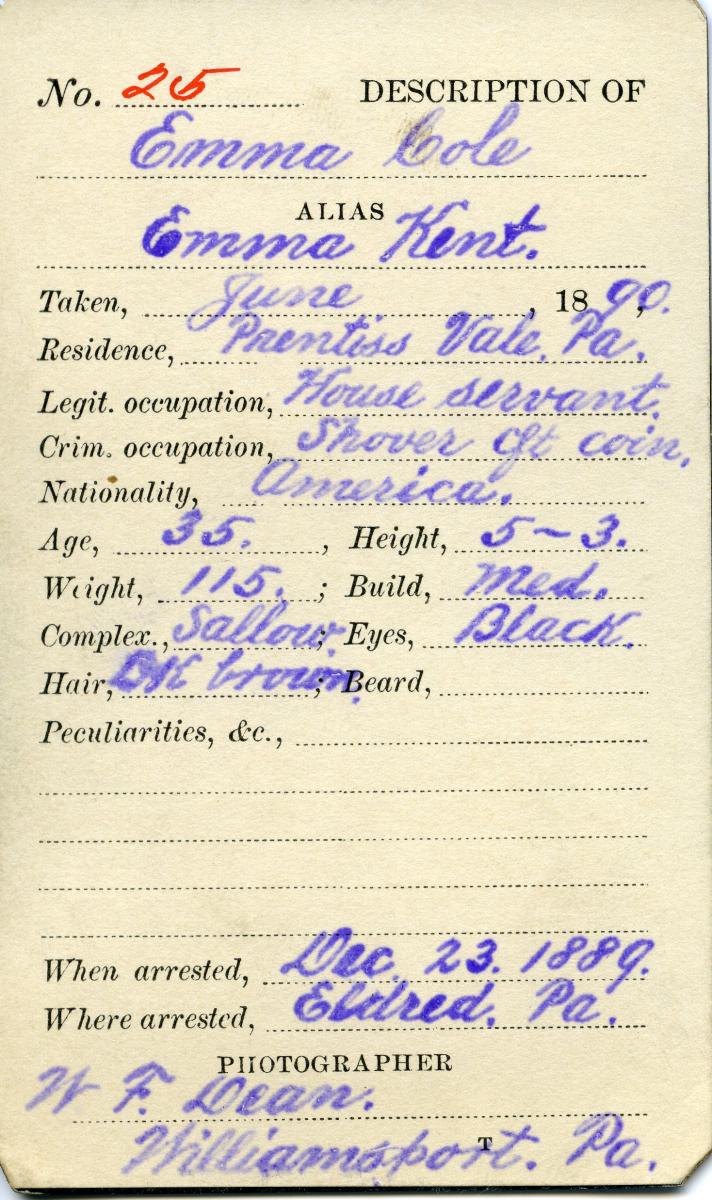 No. 25 DESCRIPTION OF
Emma Cole
ALIAS
Emma Kent.
Taken, June, 1890.
Residence, Prentiss Vale, Pa.
Legit. occupation, House servant.
Crim. occupation, Shover cft coin,
Nationality, America.
Age, 35. , Height, 5-3.
Weight, 115. ; Build, Med.
Complex., Sallow. ; Eyes, Black.
Hair, DK brown. ; Beard,
Peculiarities, &c.,
When arrested, Dec. 23. 1889.
Where arrested, Eldred. Pa.
PHOTOGRAPHER
W F. Dean.
T
Williamsport. Pa.